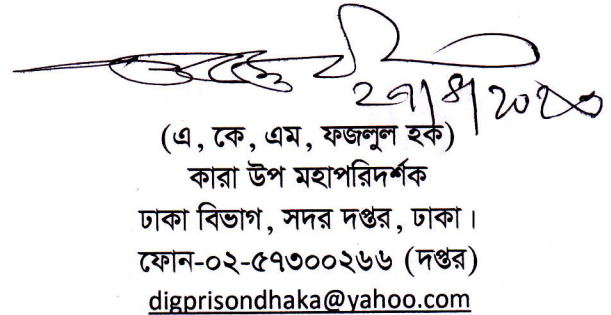 ২৭|৪|২০২০
(এ, কে, এম, ফজলুল হক)
কারা উপ মহাপরিদর্শক
ঢাকা বিভাগ, সদর দপ্তর, ঢাকা।
ফোন-০২-৫৭৩০০২৬৬ (দপ্তর)
digprisondhaka@yahoo.com